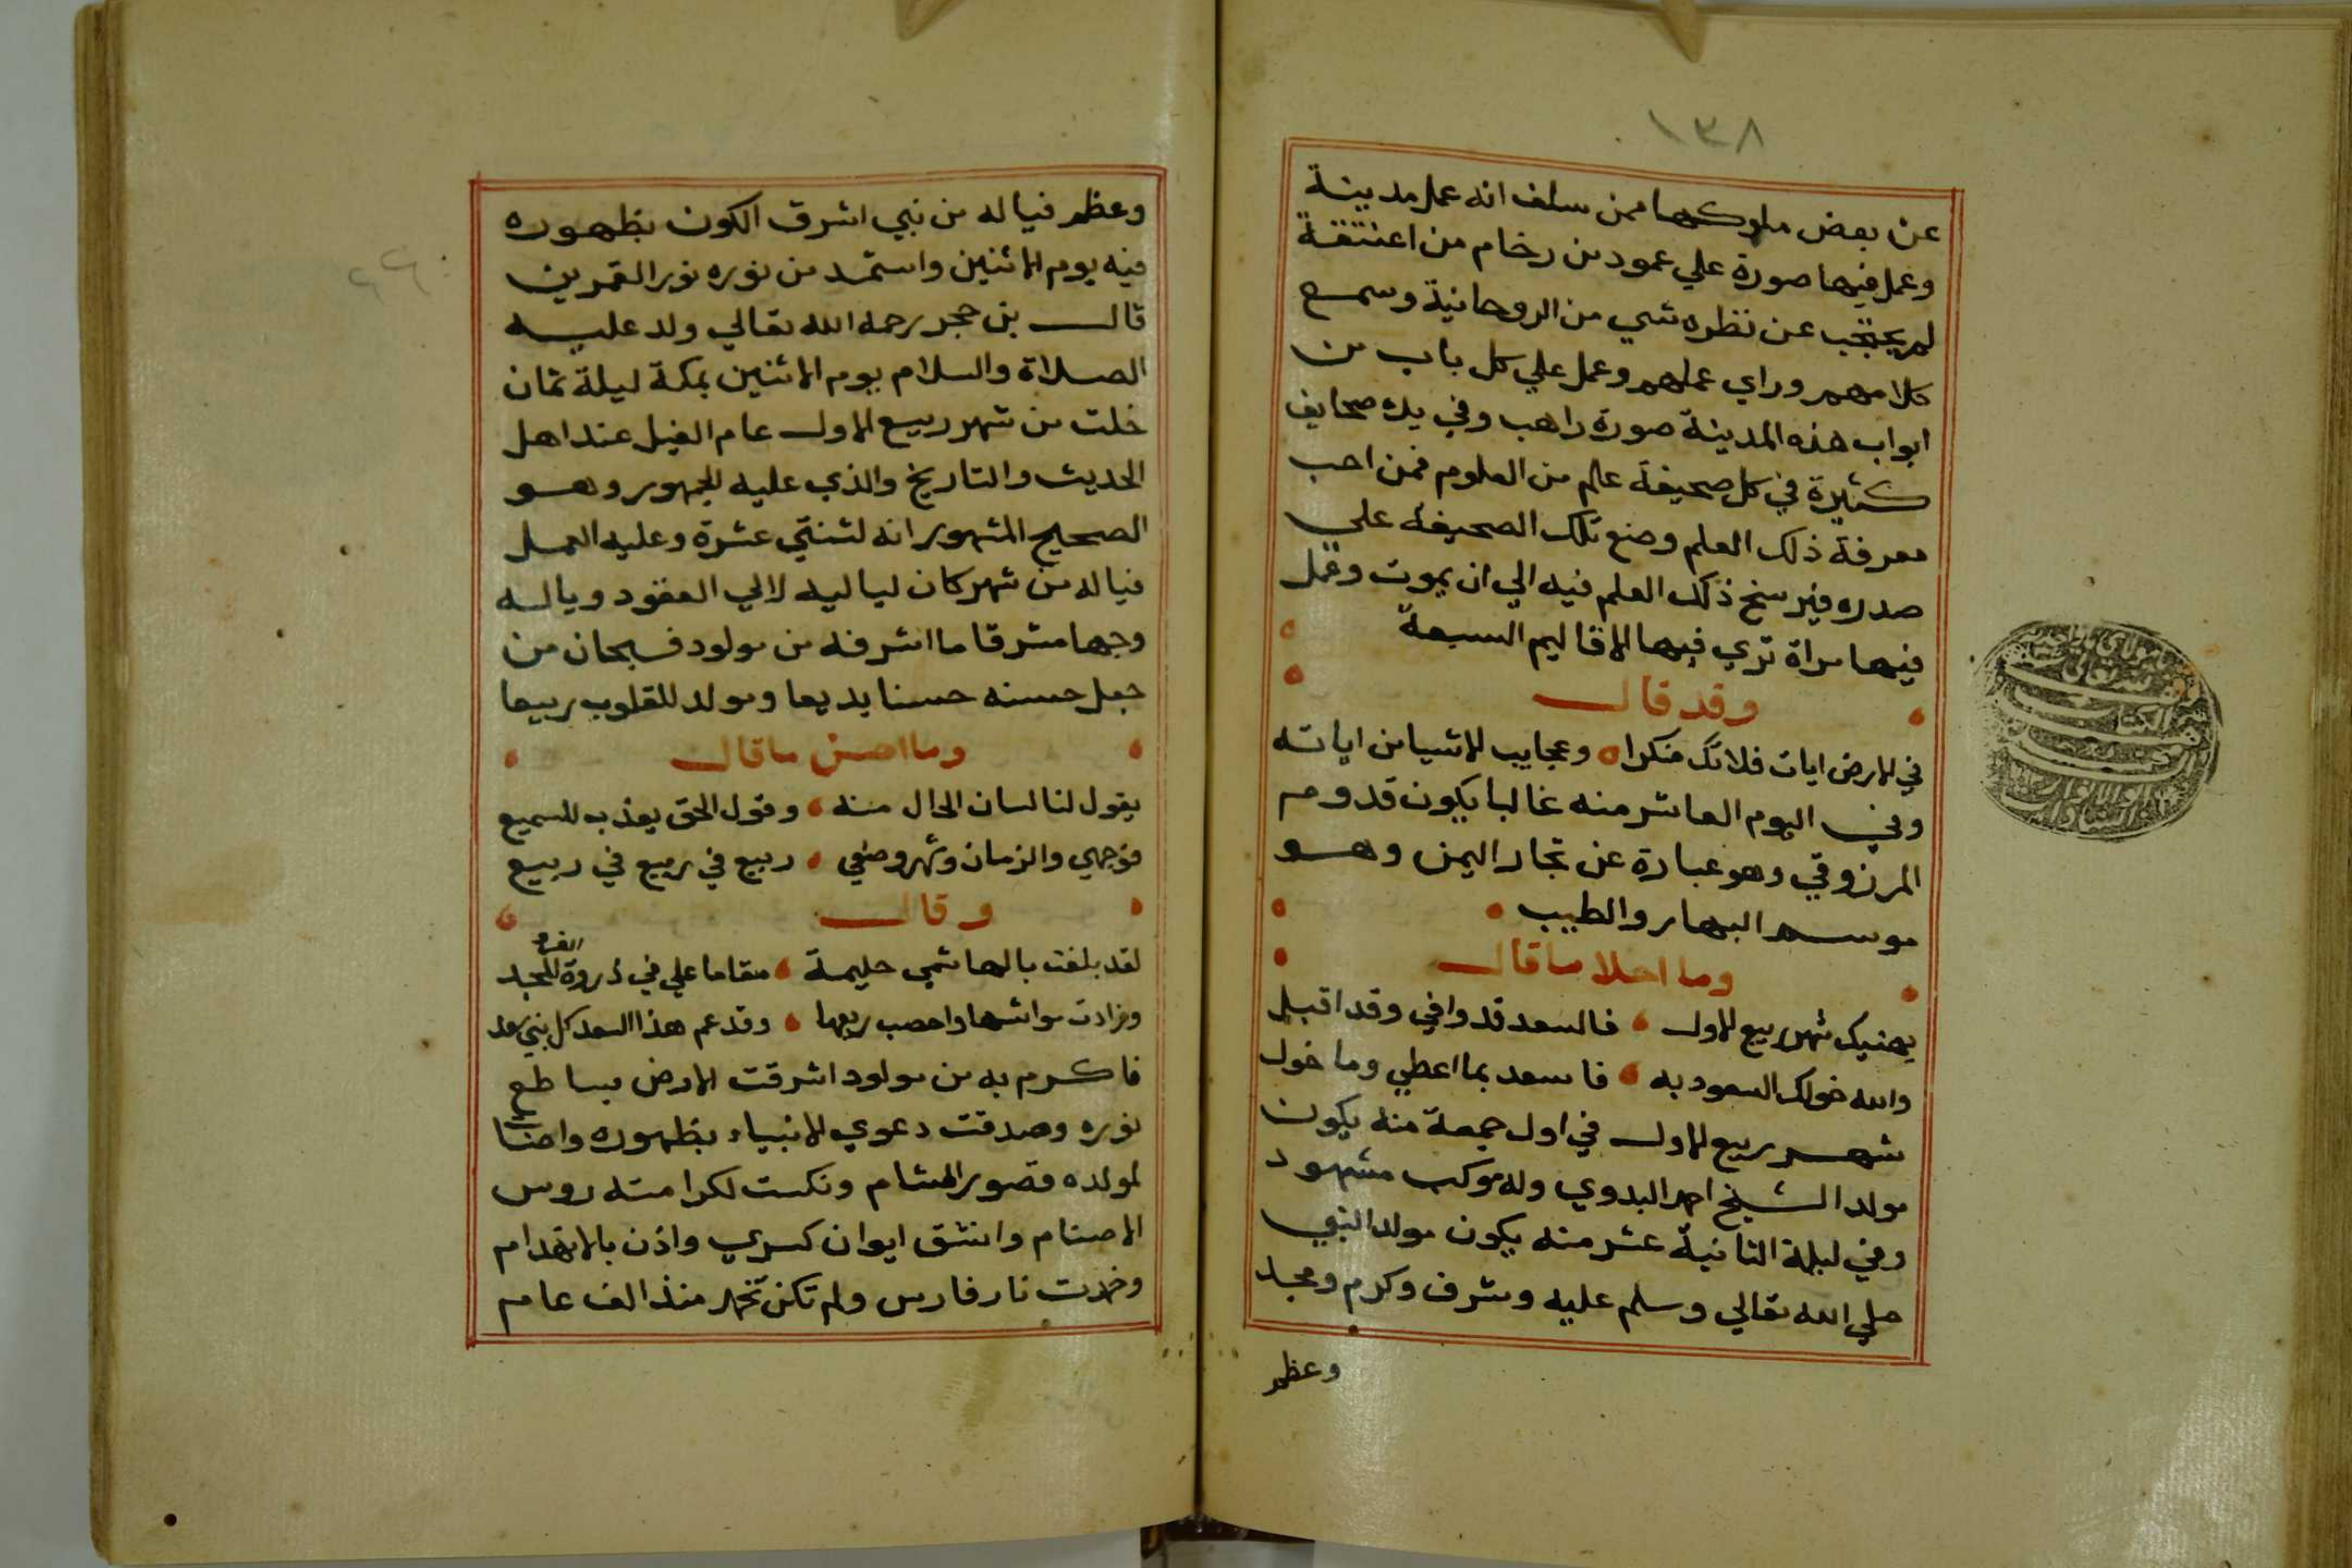 ١٣٨
عن بعض ملوكها ممن سلف انه عمل مدينة
وعمل فيها صورة علي عمود من رخام من اعتنقة
لم يحتجب عن نظره شي من الروحانية وسمع
كلامهم وراي عملهم وعمل علي كل باب من
ابواب هذه المدينة صورة راهب وفي يده صحايف
كثيرة في كل صحيفة علم من العلوم فمن احب
معرفة ذلك العلم وضع تلك الصحيفة علي
صدره فيرسخ ذلك العلم فيه الي ان يموت وعمل
فيها مراة تري فيها الاقاليم السبعة
وقد قال
في الارض ايات فلاتك منكرا وعجايب الاشيا من اياته
وفي اليوم العاشر منه غالبا يكون قدوم
المرزوقي وهو عبارة عن تجار اليمن وهو
موسم البهار والطيب
وما احلا ما قال
يهنيك شهر ربيع الاول فالسعد قد وافي وقد اقبل
والله خولك السعود به فاسعد بما اعطي وما خول
شهر ربيع الاول في اول جمعة منه يكون
مولد الشيخ احمد البدوي وله موكب مشهود
وفي ليلة الثانية عشر منه يكون مولد النبي
صلي الله تعالي وسلم عليه وشرف وكرم ومجد
وعظم
وعظم فياله من نبي اشرق الكون بظهوره
فيه يوم الاثنين واستمد من نوره نور القمرين
قال بن حجر رحمه الله تعالي ولد عليه
الصلاة والسلام يوم الاثنين بمكة ليلة ثمان
خلت من شهر ربيع الاول عام الفيل عند اهل
الحديث والتاريخ والذي عليه الجمهور وهو
الصحيح المشهور انه لثنتي عشرة وعليه العمل
فياله من شهر كان لياليه لالي العقود وياله
وجها مشرقا ما اشرفه من مولود فسبحان من
جعل حسنه حسنا بديعا ومولد للقلوب ربيعا
وما احسن ما قال
يقول لنا لسان الحال منه وقول الحق يعذب للسميع
فوجهي والزمان وشهر وضعي ربيع في ربيع في ربيع
وقال
لقد بلغت بالهاشمي حليمة مقاما علي في ذروة العز والمجد
وزادت مواشها واخصب ربعها وقد عم هذا السعد كل بني سعد
فاكرم به من مولود اشرقت الارض بساطع
نوره وصدقت دعوي الانبياء بظهوره واضات
لمولده قصور الشام ونكست لكرامته روس
الاصنام وانشق ايوان كسري واذن بالانهدام
وخمدت نار فارس ولم تكن تخمد منذ الف عام